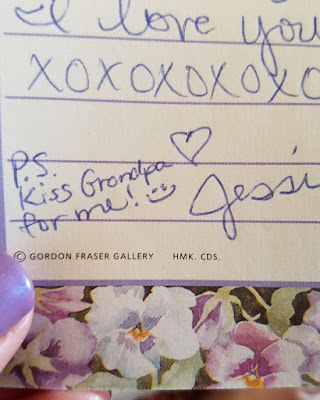 I love you
XOXOXOXOXO
P.S.
Kiss Grandpa
for me!
Jessi
© GORDON FRASER GALLERY HMK. CDS.